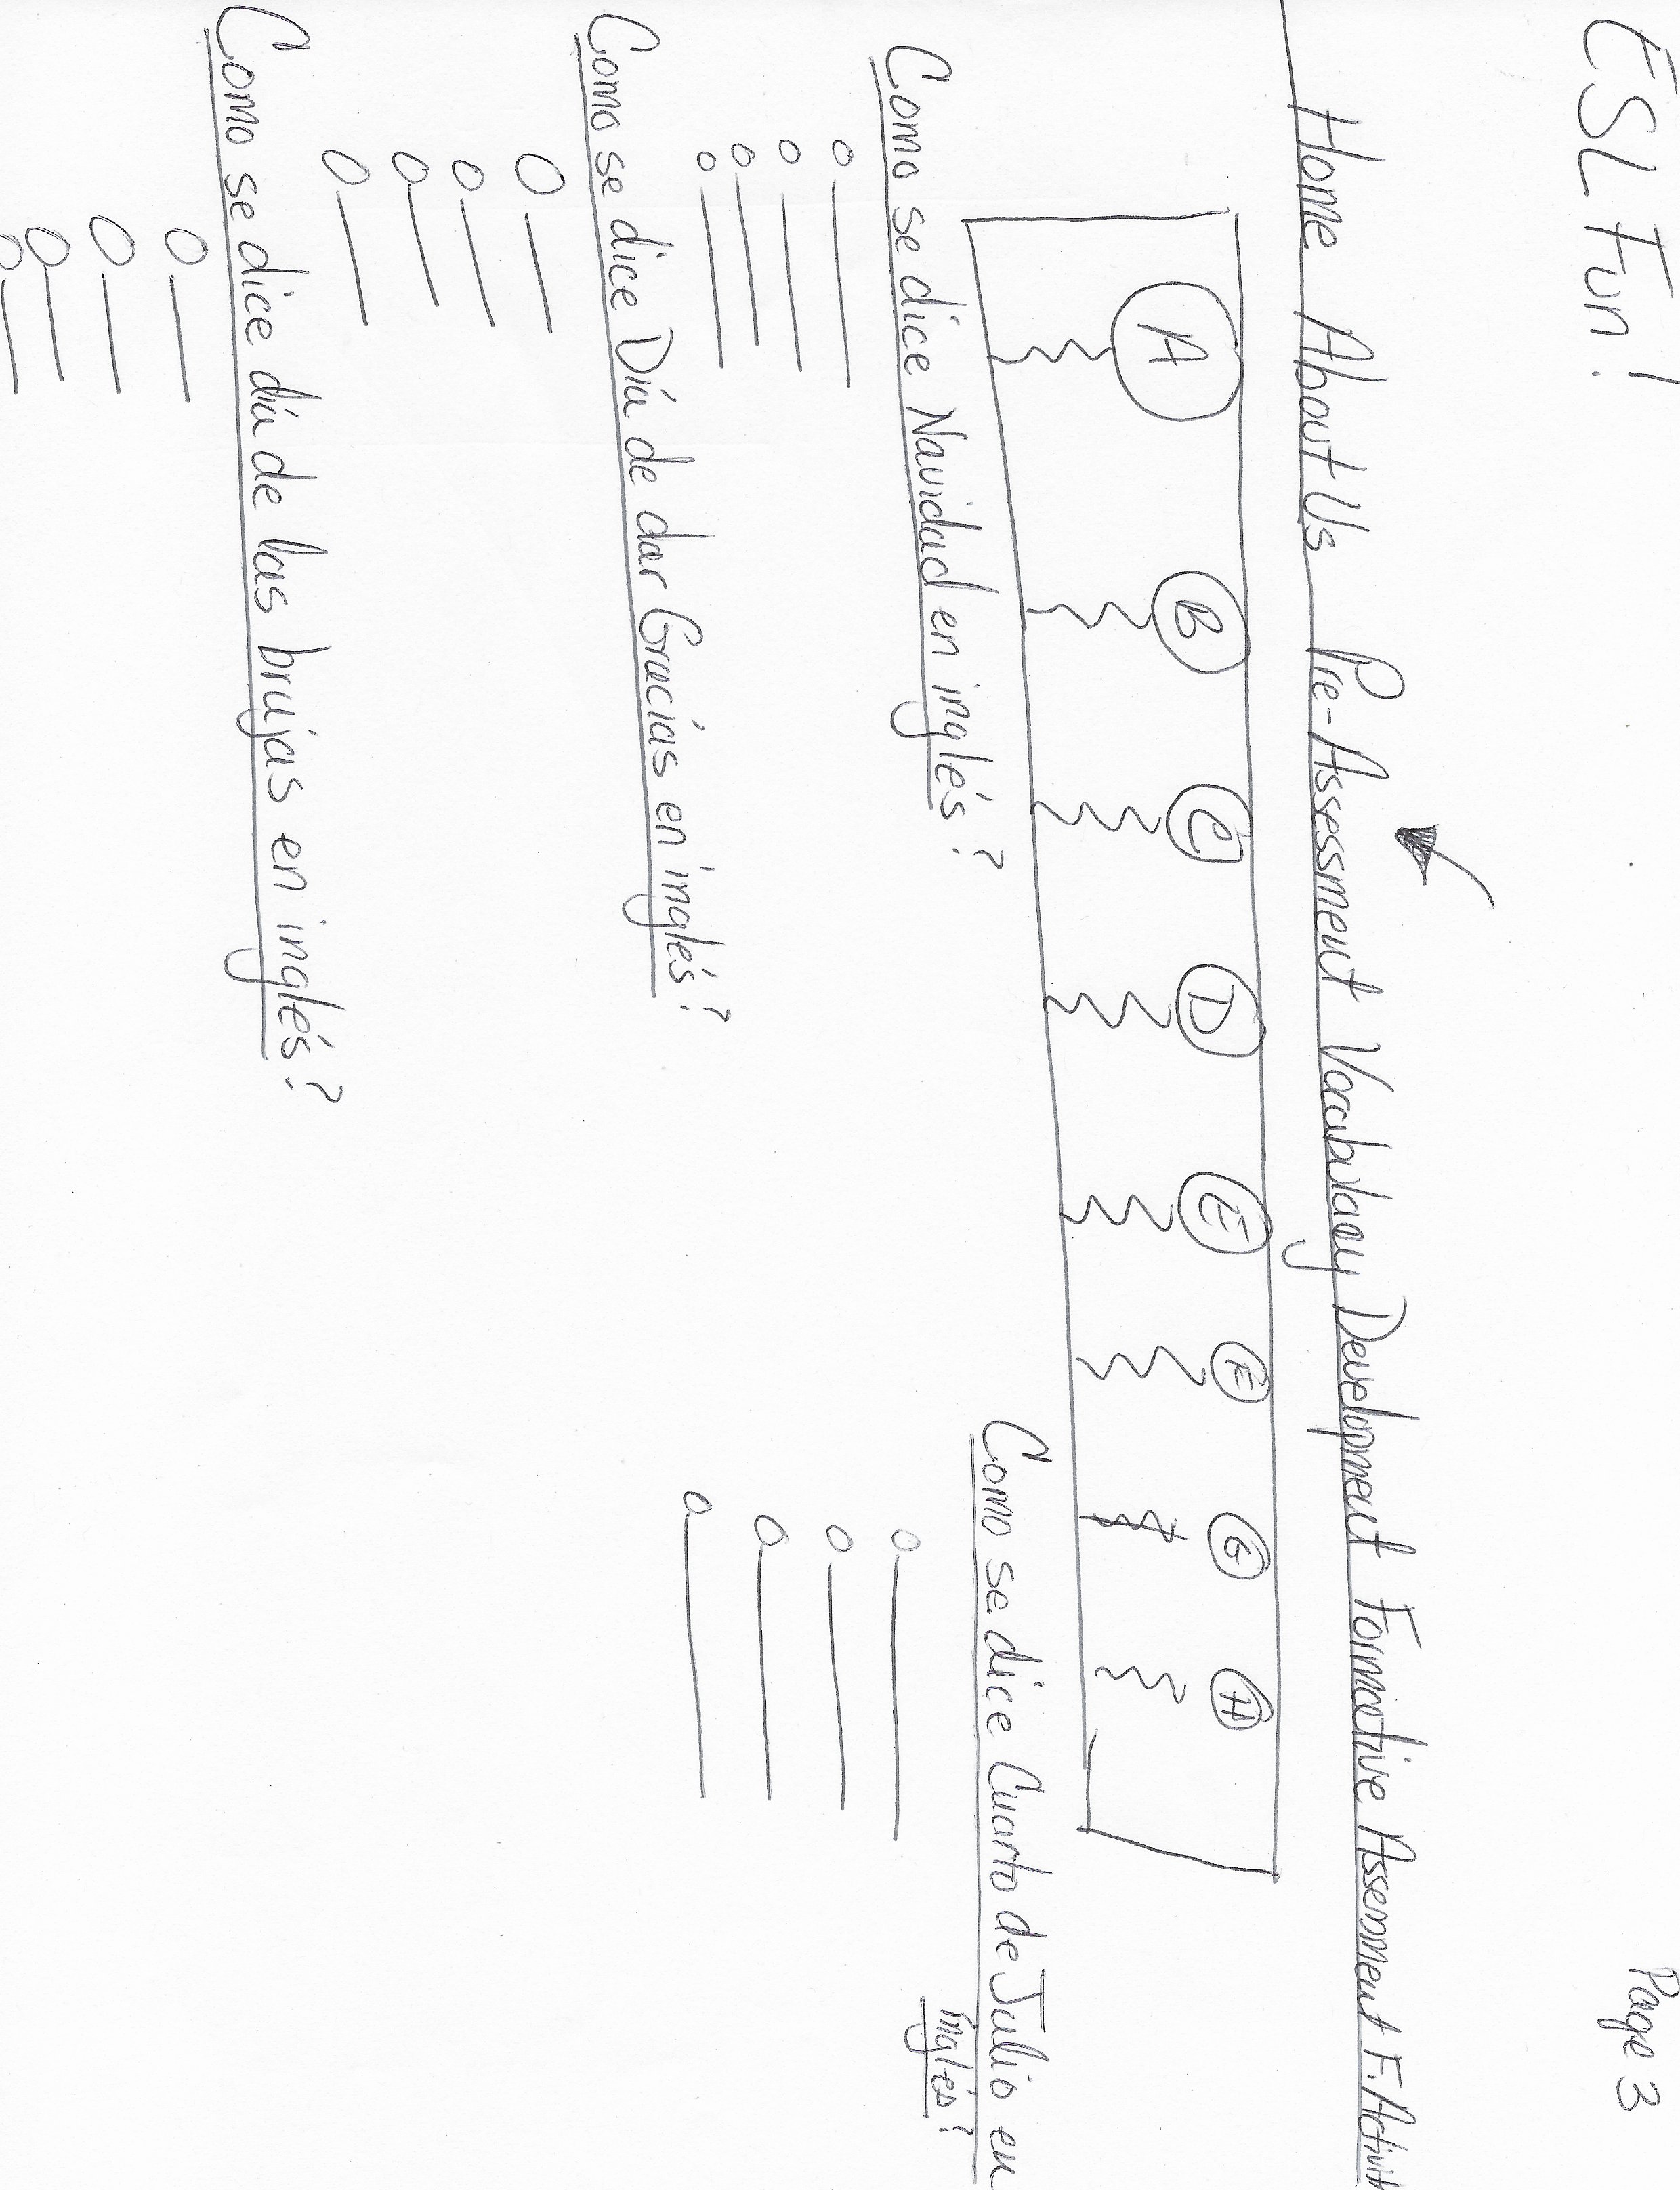 ESL Fun!
Page 3
Home About Us Pre-Assessment Vocabulary Development Formative Assessment F. Activit
A B C D E F G H
Como se dice Navidad en inglés?
Como se dice Cuarto de Julio en
inglés?
Como se dice Día de dar Gracias en inglés?
Como se dice día de las brujas en inglés?